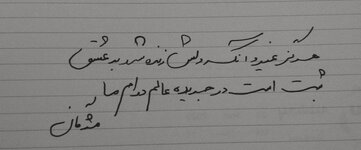 هرگز نمیرد آنکه دلش زنده شد به عشق
ثبت است در جریده عالم دوام ما